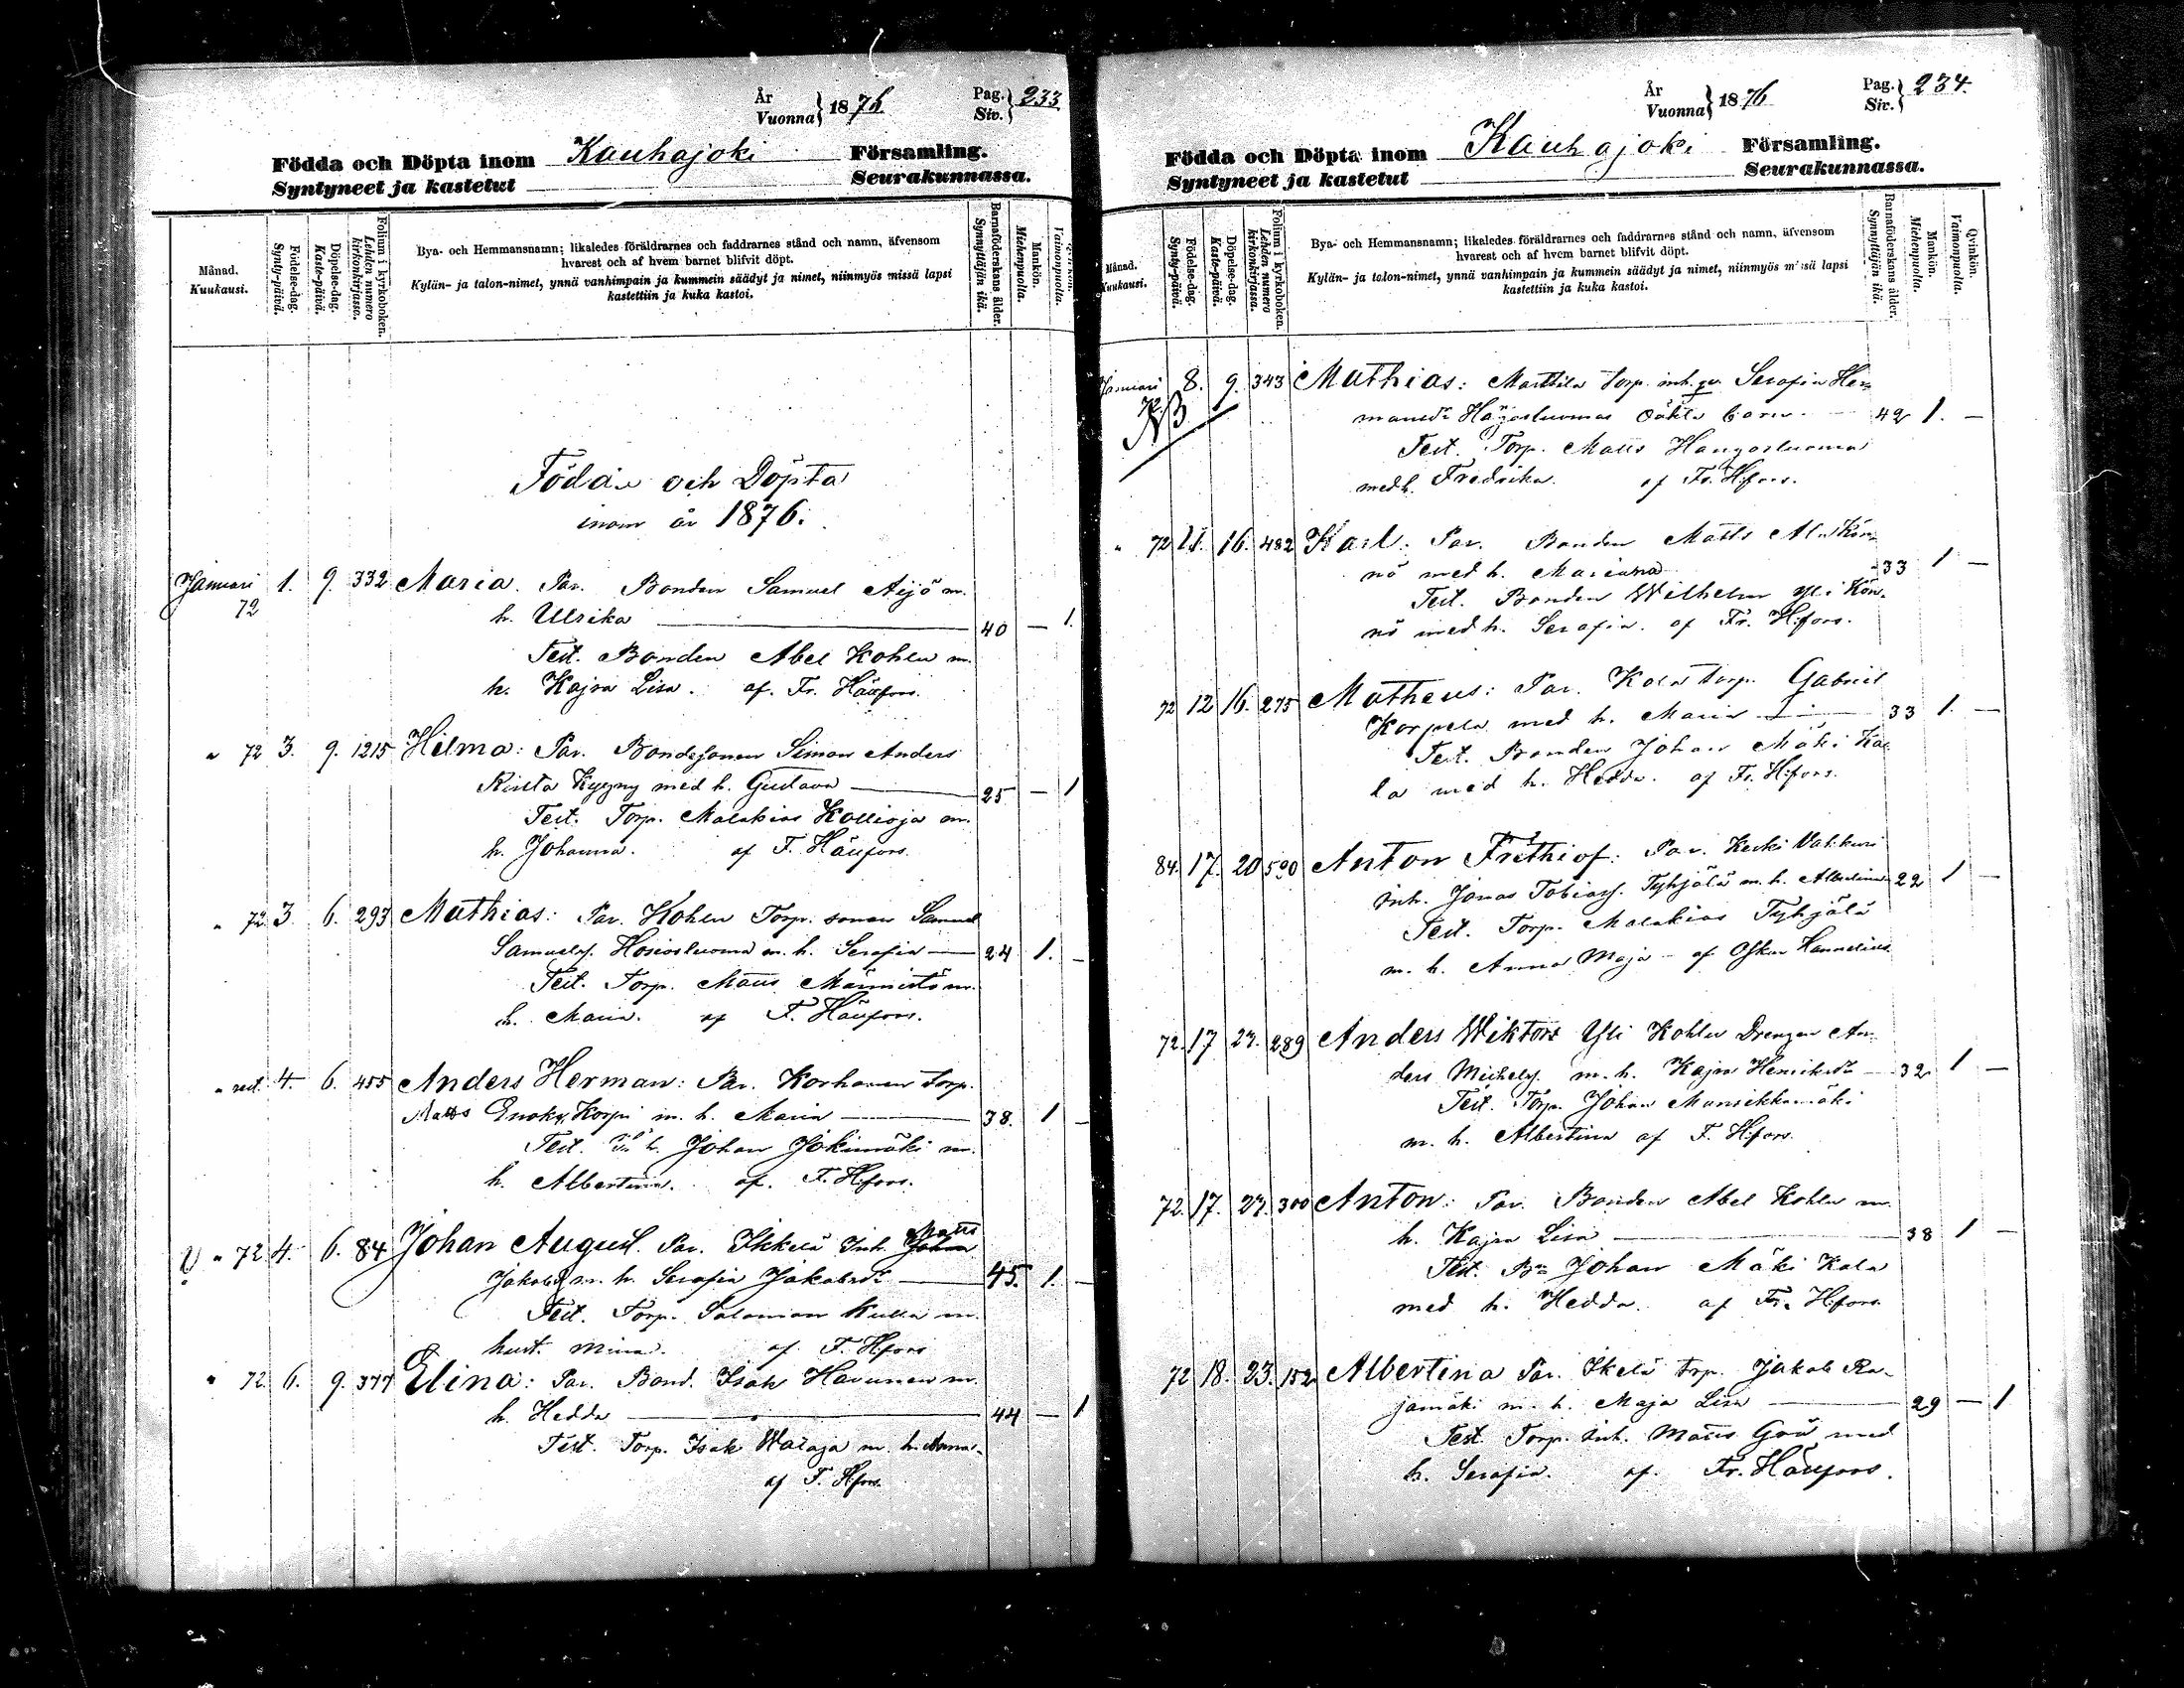 År
Vuonna } 1876 Pag.
Siv. } 233
Födda och Döpta inom Kauhajoki Församling.
Syntyneet ja kastetut Seurakunnassa.
Månad.
Kuukausi.
Födelse-dag.
Synty-päivä.
Döpelse-dag.
Kaste-päivä.
Folium i kyrkoboken.
Lehden numero kirkonkirjassa.
Bya- och Hemmansnamn; likaledes föräldrarnes och faddrarnes stånd och namn, äfvensom
hvarest och af hvem barnet blifvit döpt.
Kylän- ja talon-nimet, ynnä vanhimpain ja kummein säädyt ja nimet, niinmyös missä lapsi
kastettiin ja kuka kastoi.
Barnaföderskans ålder.
Synnyttäjän ikä.
Mankön.
Miehenpuolia.
Qvinkön.
Vaimonpuolia.
Födde och Döpta
inom år 1876.
Januari 1. 9. 332 Maria. Par. Bonden Samuel Äijö m.
72 h. Ulrika — 40 — 1.
Test. Bonden Abel Kohlu m.
h. Kajsa Lisa. af. Fr. Hällfors.
" 72 3. 9. 1215 Hilma: Par. Bondesonen Simon Anders
Rista Kyyny med h. Gustava — 25 — 1
Test. Torp. Malakias Kallioja m.
h. Johanna. af F. Hällfors.
" 72 3. 6. 293 Mathias: Par. Kohlu Torp. sonen Samuel
Samuelss. Hosiosluoma m. h. Serafia — 24 1. —
Test. Torp. Matts Männistö m.
h. Maria. af F. Hällfors.
" 4. 6. 455 Anders Herman: Par. Korhonen Torp.
Matts Enoks. Korpi m. h. Maria — 38. 1 —
Test. Johan Jokimäki m.
h. Albertina. af. F. Hfors.
" 72 4. 6. 84 Johan August. Par. Ikkelä Inh. Matts
Jakobss. m. h. Serafia Jakobsdr — 45. 1. —
Test. Torp. Salomon Kulla m.
hust. Mina. af F. Hfors
" 72 6. 9. 377 Elina: Par. Bond. Isak Havunen m.
h. Hedda — 44 — 1
Test. Torp. Isak Walaja m. h. Anna.
af F. Hfors.
År
Vuonna } 1876 Pag.
Siv. } 234.
Födda och Döpta inom Kauhajoki Församling.
Syntyneet ja kastetut Seurakunnassa.
Månad.
Kuukausi.
Födelse-dag.
Synty-päivä.
Döpelse-dag.
Kaste-päivä.
Folium i kyrkoboken.
Lehden numero kirkonkirjassa.
Bya- och Hemmansnamn; likaledes föräldrarnes och faddrarnes stånd och namn, äfvensom
hvarest och af hvem barnet blifvit döpt.
Kylän- ja talon-nimet, ynnä vanhimpain ja kummein säädyt ja nimet, niinmyös missä lapsi
kastettiin ja kuka kastoi.
Barnaföderskans ålder.
Synnyttäjän ikä.
Mankön.
Miehenpuolia.
Qvinkön.
Vaimonpuolia.
Januari 8. 9. 343 Mathias: Marttila Torp. inh. qv. Serafia Her-
72 NB mansdr Hangasluomas oäkta barn. — 42 1. —
Test. Torp. Matts Hangasluoma
med h. Fredrika. af Fr. Hfors.
" 72 11. 16. 482 Karl: Par. Bonden Matts Ala Kön-
nö med h. Mariana — 33 1 —
Test. Bonden Wilhelm Yli Kön-
nö med h. Serafia. af Fr. Hfors.
72 12 16. 275 Matheus: Par. Kala Torp. Gabriel
Korpela med h. Maria — 33 1. —
Test. Bonden Johan Mäki Ka-
la med h. Hedda. af Fr. Hfors.
84. 17. 20 500 Anton Frithiof: Par. Keski Valkuri
Inh. Jonas Tobiass. Tyhjälä m. h. Albertina 22 1 —
Test. Torp. Malakias Tyhjälä
m. h. Anna Maja — af Oskar Hannelius.
72. 17 27. 289 Anders Wiktor Yli Kohlu Drengen An-
ders Michelss. m. h. Kajsa Henriksdr — 32 1 —
Test. Torp. Johan Mansikkamäki
m. h. Albertina af F. Hfors.
72. 17. 27. 300 Anton: Par. Bonden Abel Kohlu m.
h. Kajsa Lisa — 38 1 —
Test. Bn Johan Mäki Kala
med h. Hedda. af Fr. Hfors.
72 18. 23. 152 Albertina Par. Ikelä torp. Jakob Ra-
jamäki m. h. Maja Lisa — 29 — 1
Test. Torp. Inh. Matts Grö med
h. Serafia. af. Fr. Hällfors.